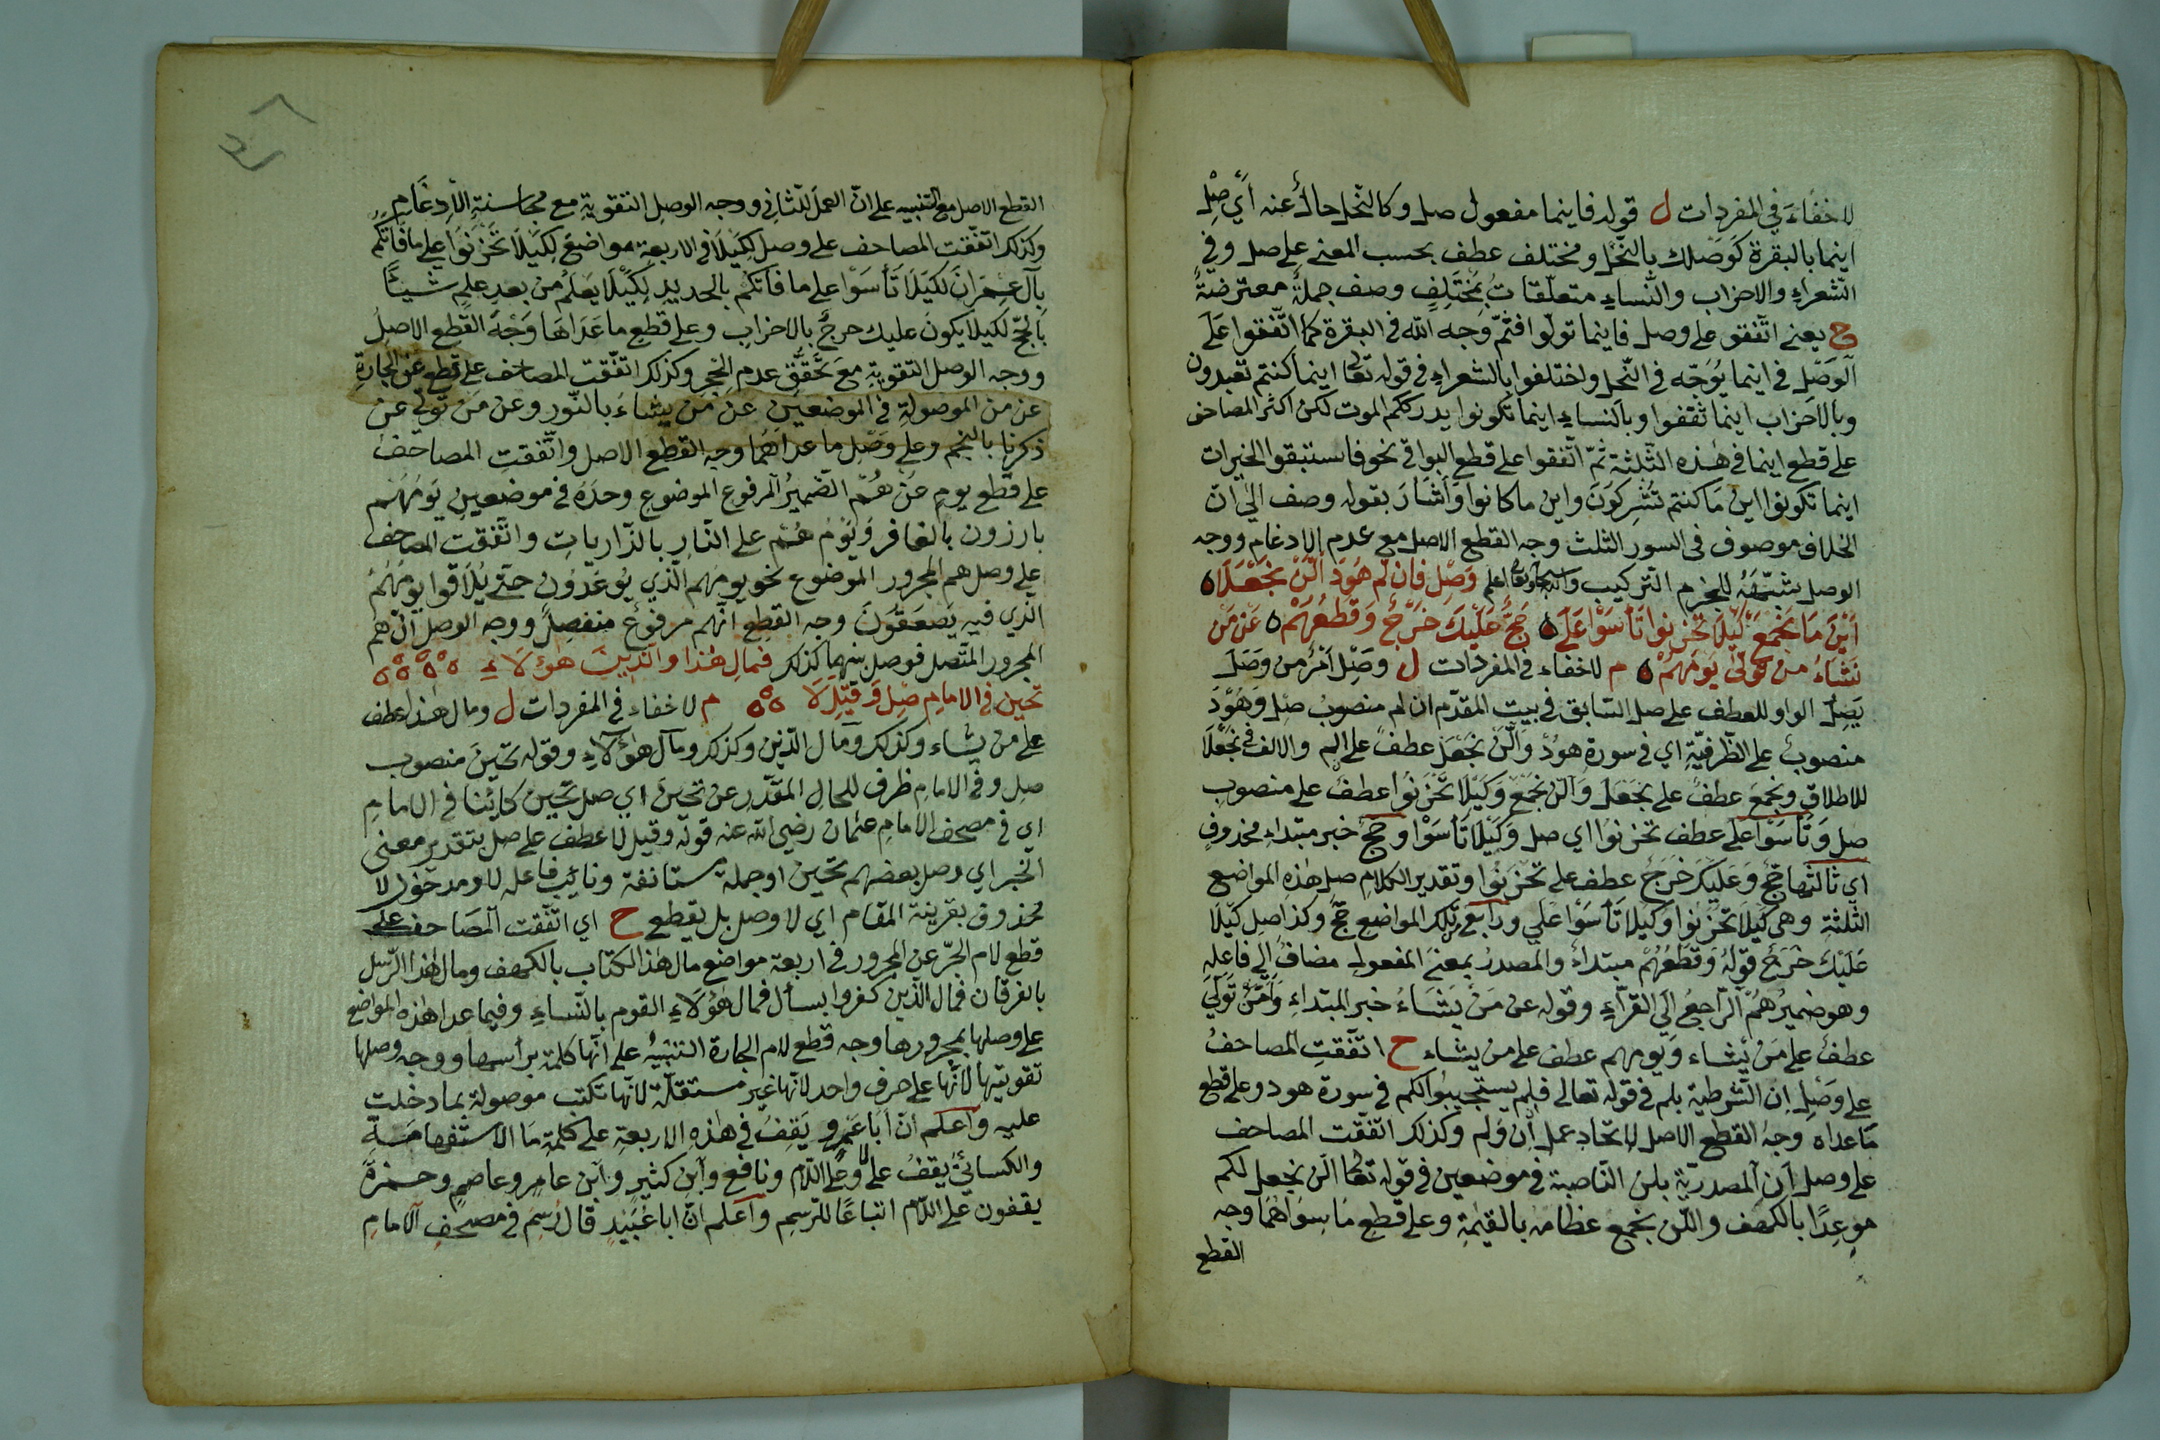 لاخفاءَ في المفردات ل قوله فاينما مفعول صل وكالنّحل حالٌ عنه اَي صِل
اينما بالبقرة كَوَصْلك بالنّحْل ومختلف عطف بحسب المعنى على صل وفي
الشّعراءِ والاحزاب والنّساءِ متعلّقاتُ بمُختَلِفٍ وصف جملةٌ معترضةٌ
ح يعني اتّفقو على وصل فاينما تولّوا فثمّ وجه الله في البقرة كما اتّفقوا عَلَى
الوَصْلِ في اينما يُوَجّه في النّحل واختلفوا بالشعراءِ في قوله تعالى اينما كنتم تعبدون
وبالاَحزاب اينما ثقفوا وبالنساءِ اينما تكونوا يدرككم الموت لكن اكثر المصاحف
على قطع اينما في هٰذه الثّلثة ثمّ اتّفقوا على قطع البواقي نحو فاستبقوا الخيرات
اينما تكونوا اين مَا كنتم تُشْرِكوَنَ واين ما كانوا وَاَشَارَ بقوله وصف الى انّ
الخلاف موصوف في السور الثلث وجه القطع الاصل مع عدم الادغام ووجه
الوصل شَبَهُهُ للجزم التّركيب والله سبحانه وتعالى اعلم وَصِل فان لم هُودَ الّن نجعَلَا ه
اَين مَا نجمع كَيْلَا تحزنوا تَأسَوْا عَلَى ه حجٌّ عَلَيْكَ حَرَجٌ وَقَطْعُهُمْ ه عَن مَن
يَشَاءُ من تولّى يَومَ هُمْ ه م لاخفاء في المفردات ل وصِل اَمْرٌ من وَصَلَ
يَصِلُ الواو للعطف على صل السّابق في بيت المقدّم ان لم منصوبُ صل وَهُودَ
منصوبٌ على الظّرفيّةِ اي في سورة هودٌ وَالّن نجعَلَ عطفٌ على الم والالف في نجعَلَا
للاطلاق ونجمَعَ عطفٌ على نجعَلَ وَالّن نجمَعَ وَكَيْلَا تحْزَنوُا عطفٌ على منصوبِ
صل وَتَأسَوْا على عطف تحزنوُا اي صل وَكَيْلَا تَأسَوْا وحجٌّ خبر مبتداءٍ محذوفٍ
اي ثَالثُها حجٌّ وَعَلَيْكَ حَرَجٌ عطف على تحْزَنوُا وتقدير الكلام صل هٰذِهِ المواضع
الثلثةِ وهي كَيْلَا تحْزنوا وَكيلا تَأسَوْا عَلَى ورَابع تلك المواضع حجٌّ وكذا صل كَيْلَا
عَلَيْكَ حَرَجٌ قولهُ وَقَطْعُهُمْ مبتداءٌ والمصدرُ بمعنَى المفعولِ مضافٌ الى فاعلهِ
وهو ضميرُ هُمُ الرّاجعُ الَى القرّاءِ وقوله عن مَن يَشَاءُ خبر المبتداءِ وَمَنْ تَوَلَّى
عطفٌ على مَن يَشاء وَيومهم عطف على من يشاء ح اتّفقتِ المصاحفُ
على وَصْلِ اِن الشّرطية بلم في قوله تعالى فَلم يستجيبُوا لكم في سورة هود وعلى قطع
مَاعداه وجهُ القطع الاصل لاتّحاد عمل اِن وَلم وكذلك اتّفقت المصاحف
على وصل اَن المصدريّة بلن النّاصبة في موضعين في قوله تعالى الّن نجعل لكم
موعدًا بالكهف والّن نجمع عظامه بالقيٰمة وعلى قطع مَا سِوَاهُما وجه
القطع
القطع الاصل مع التنبيه على انّ العمل للثاني ووجه الوصل التقوية مع مجانسةِ الاِدْغَامِ
وكذلك اتّفقت المصاحف على وصل لِكَيلَا في الاربعة مواضع لِكَيلَا تحْزَنوُا على ما فاتكم
بآل عِمرَانَ لكَيلَا تَأسَوْا على ما فَاتكُم بالحديد لِكَيْلَا يعلَمَ من بعدِ علمٍ شيئًا
بالحجّ لكيلا يكونَ عليك حرجٌ بالاحزاب وعلى قطع ماعَدَاهَا وَجْهُ القطع الاصلُ
ووجه الوصل التقوية مَعَ تَحَقُّقِ عدم الحجر وكذلك اتّفقت المصاحف على قطع عن الجارة
عن من الموصولة في الموضعين عن مَن يشاءَ بالنّور وعن مَن تولّى عن
ذكرنا بالنجم وعلى وَصْلِ ما عداهما وجه القطع الاصل واتّفقت المصاحفُ
على قَطع يوم عَنْ هُمُ الضّميرُ المرفوع الموضوع وحدَهَ في موضعين يَومَ هُم
بارزون بالغافر وَيَوْمَ هُمْ على النّارِ بالذّارياتِ واتّفقت المصاحف
على وصل هم المجرور الموضوع نحو يومهم الّذي يُوعَدُون حَتّى يُلَاقوا يومَهُمُ
الّذي فيه يَصعَقوُنَ وجه القطع انّهم مرفوعٌ منفصلٌ ووجه الوصل انّ هم
المجرور المتّصل فوصل بنهما كذلك فمالِ هٰذا والّذينَ هٰؤلَاءِ ه ه ه ه
تحين في الامامِ صِل وَقيلَ لَا ه ه م لاخفاء في المفردات ل ومال هٰذا عطف
على من يشاء وكذلك ومآ ل الّذين وكذلك ومآل هٰؤلاءِ وقوله تحينَ منصوب
صل وفي الامامِ ظرف للحالِ المقدّر عن تحينَ اي صل تحين كائنا في الامامِ
اي في مصحف الامام عثمان رضي الله عنه قولهُ وقيل لا عطف على صل بتقدير معنى
الخبر اي وصل بعضهم تحين او جملة مستانفة ونائب فاعله لا ومدخول لا
محذوف بقرينة المقام اي لا وصل بل يقطع ح اي اتّفقت المصَاحف على
قطع لام الجرّ عن المجرور في اربعة مواضع مال هذا الكتاب بالكهف ومال هٰذا الرّسل
بالفرقان فمال الّذين كفروا بسأل فمال هٰؤلاءِ القوم بالنّساءِ وفيما عدا هٰذه المواضع
على وصلها بمجرورها وجه قطع لام الجارة التنبيهُ على انّها كلمة برأسها ووجه وصلها
تقويتها لانّها على حرف واحد لانّها غير مستقلّة لانّها تكتب موصولة بما دخلت
عليه واعلم انّ اَبَا عَمرٍو يَقِفُ في هٰذه الاربعة على كلمة مَا الاستفهاميّةِ
والكسائيّ يقفُ على ما وعلى اللّام ونافع وابن كثير وابن عامر وعاصم وحمزةُ
يقفون على اللّام اتباعًا للرّسم واعلم انّ ابا عُبَيْدٍ قال رُسِمَ في مصحف الامامِ